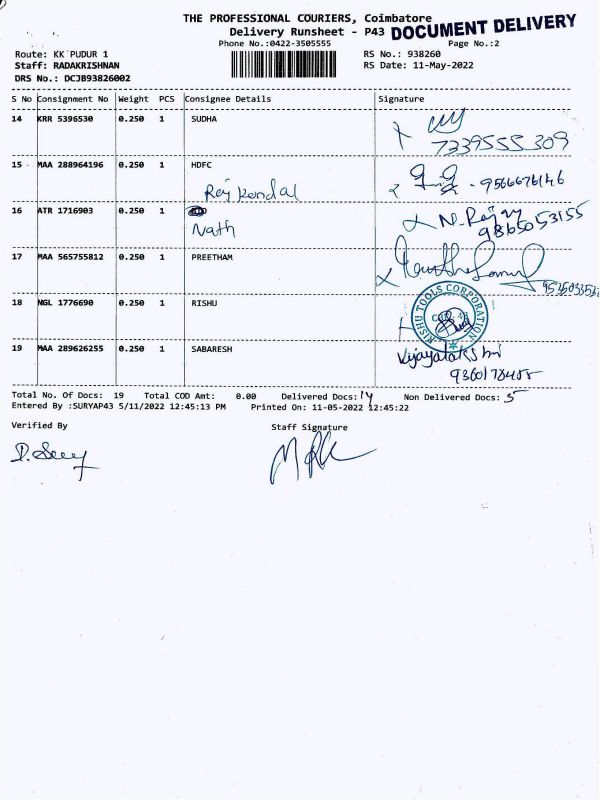 THE PROFESSIONAL COURIERS, Coimbatore
Delivery Runsheet - P43 DOCUMENT DELIVERY
Phone No.:0422-3505555 Page No.:2
Route: KK PUDUR 1 RS No.: 938260
Staff: RADAKRISHNAN RS Date: 11-May-2022
DRS No.: DCJB93826002
S No Consignment No Weight PCS Consignee Details Signature
14 KRR 5396530 0.250 1 SUDHA
7339555309
15 MAA 288964196 0.250 1 HDFC
Raj Kondal 9566676146
16 ATR 1716903 0.250 1
Nath 9865053155
17 MAA 565755812 0.250 1 PREETHAM
18 NGL 1776690 0.250 1 RISHU
RISHU TOOLS CORPORATION
19 MAA 289626255 0.250 1 SABARESH
Vijayalakshmi
Total No. Of Docs: 19 Total COD Amt: 0.00 Delivered Docs: 14 Non Delivered Docs: 5
Entered By :SURYAP43 5/11/2022 12:45:13 PM Printed On: 11-05-2022 12:45:22
Verified By Staff Signature